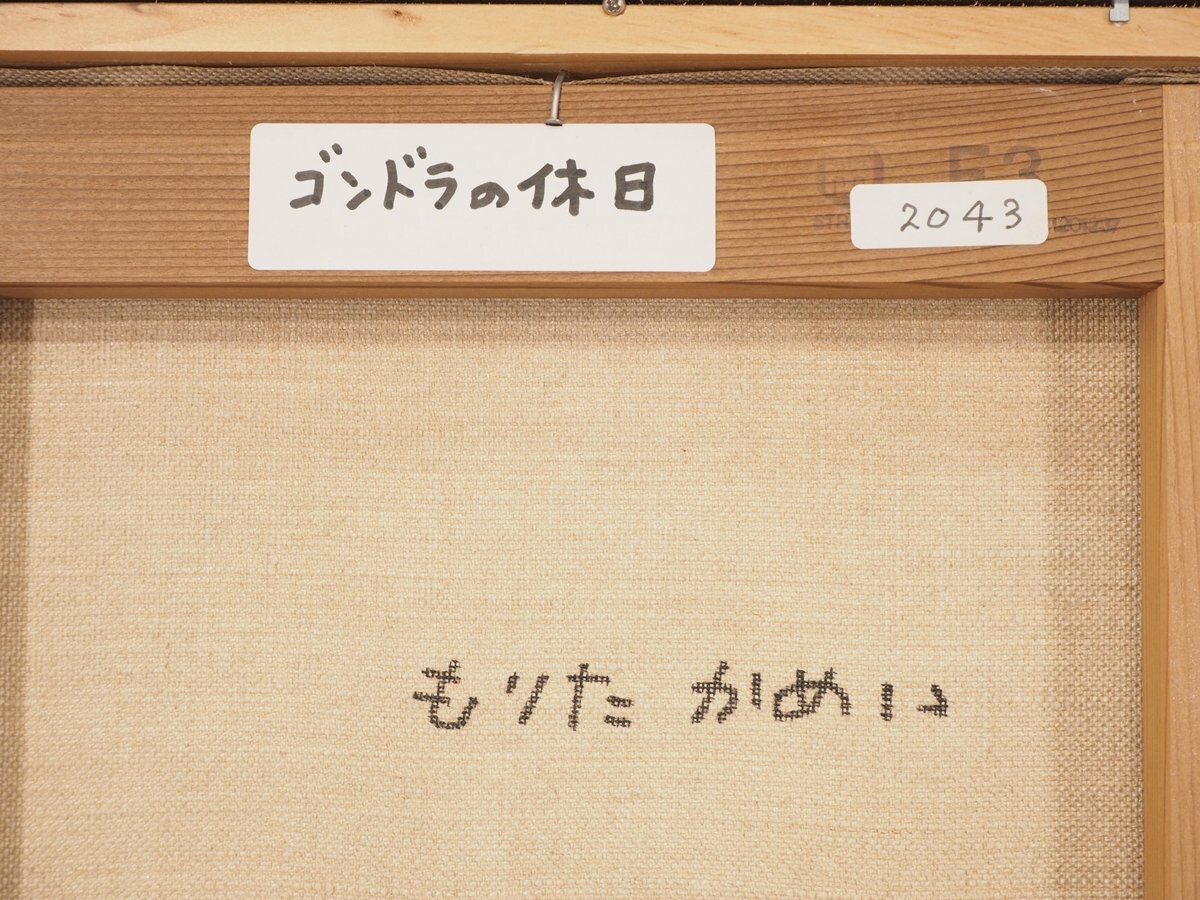 ゴンドラの休日
2043
F3
もりた かめい